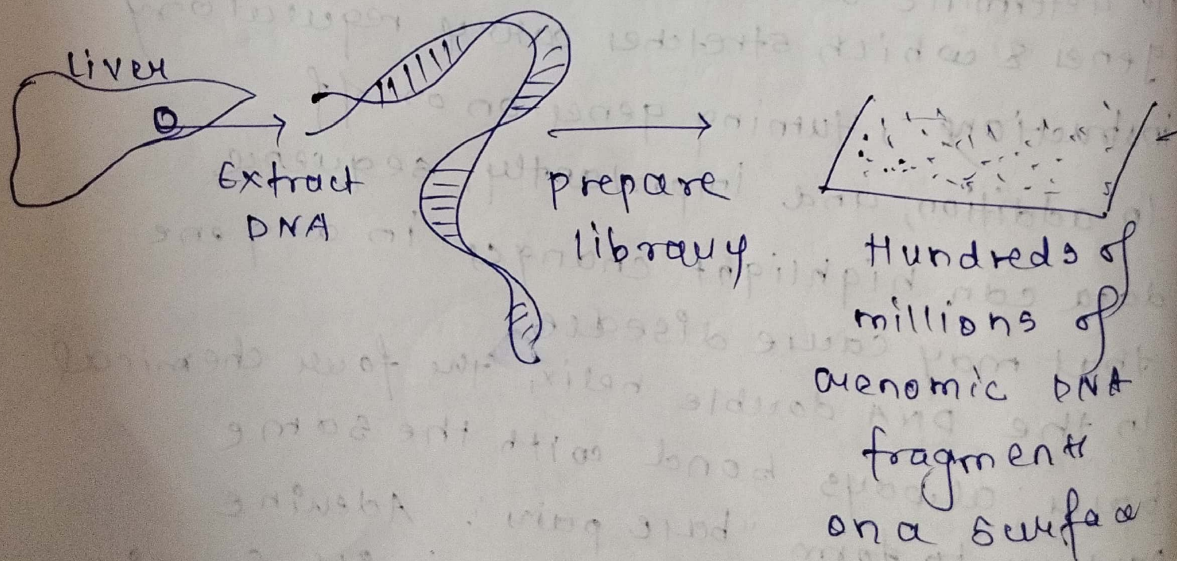 Liver
Extract
DNA
prepare
library
Hundreds of
millions of
Genomic DNA
fragments
on a surface